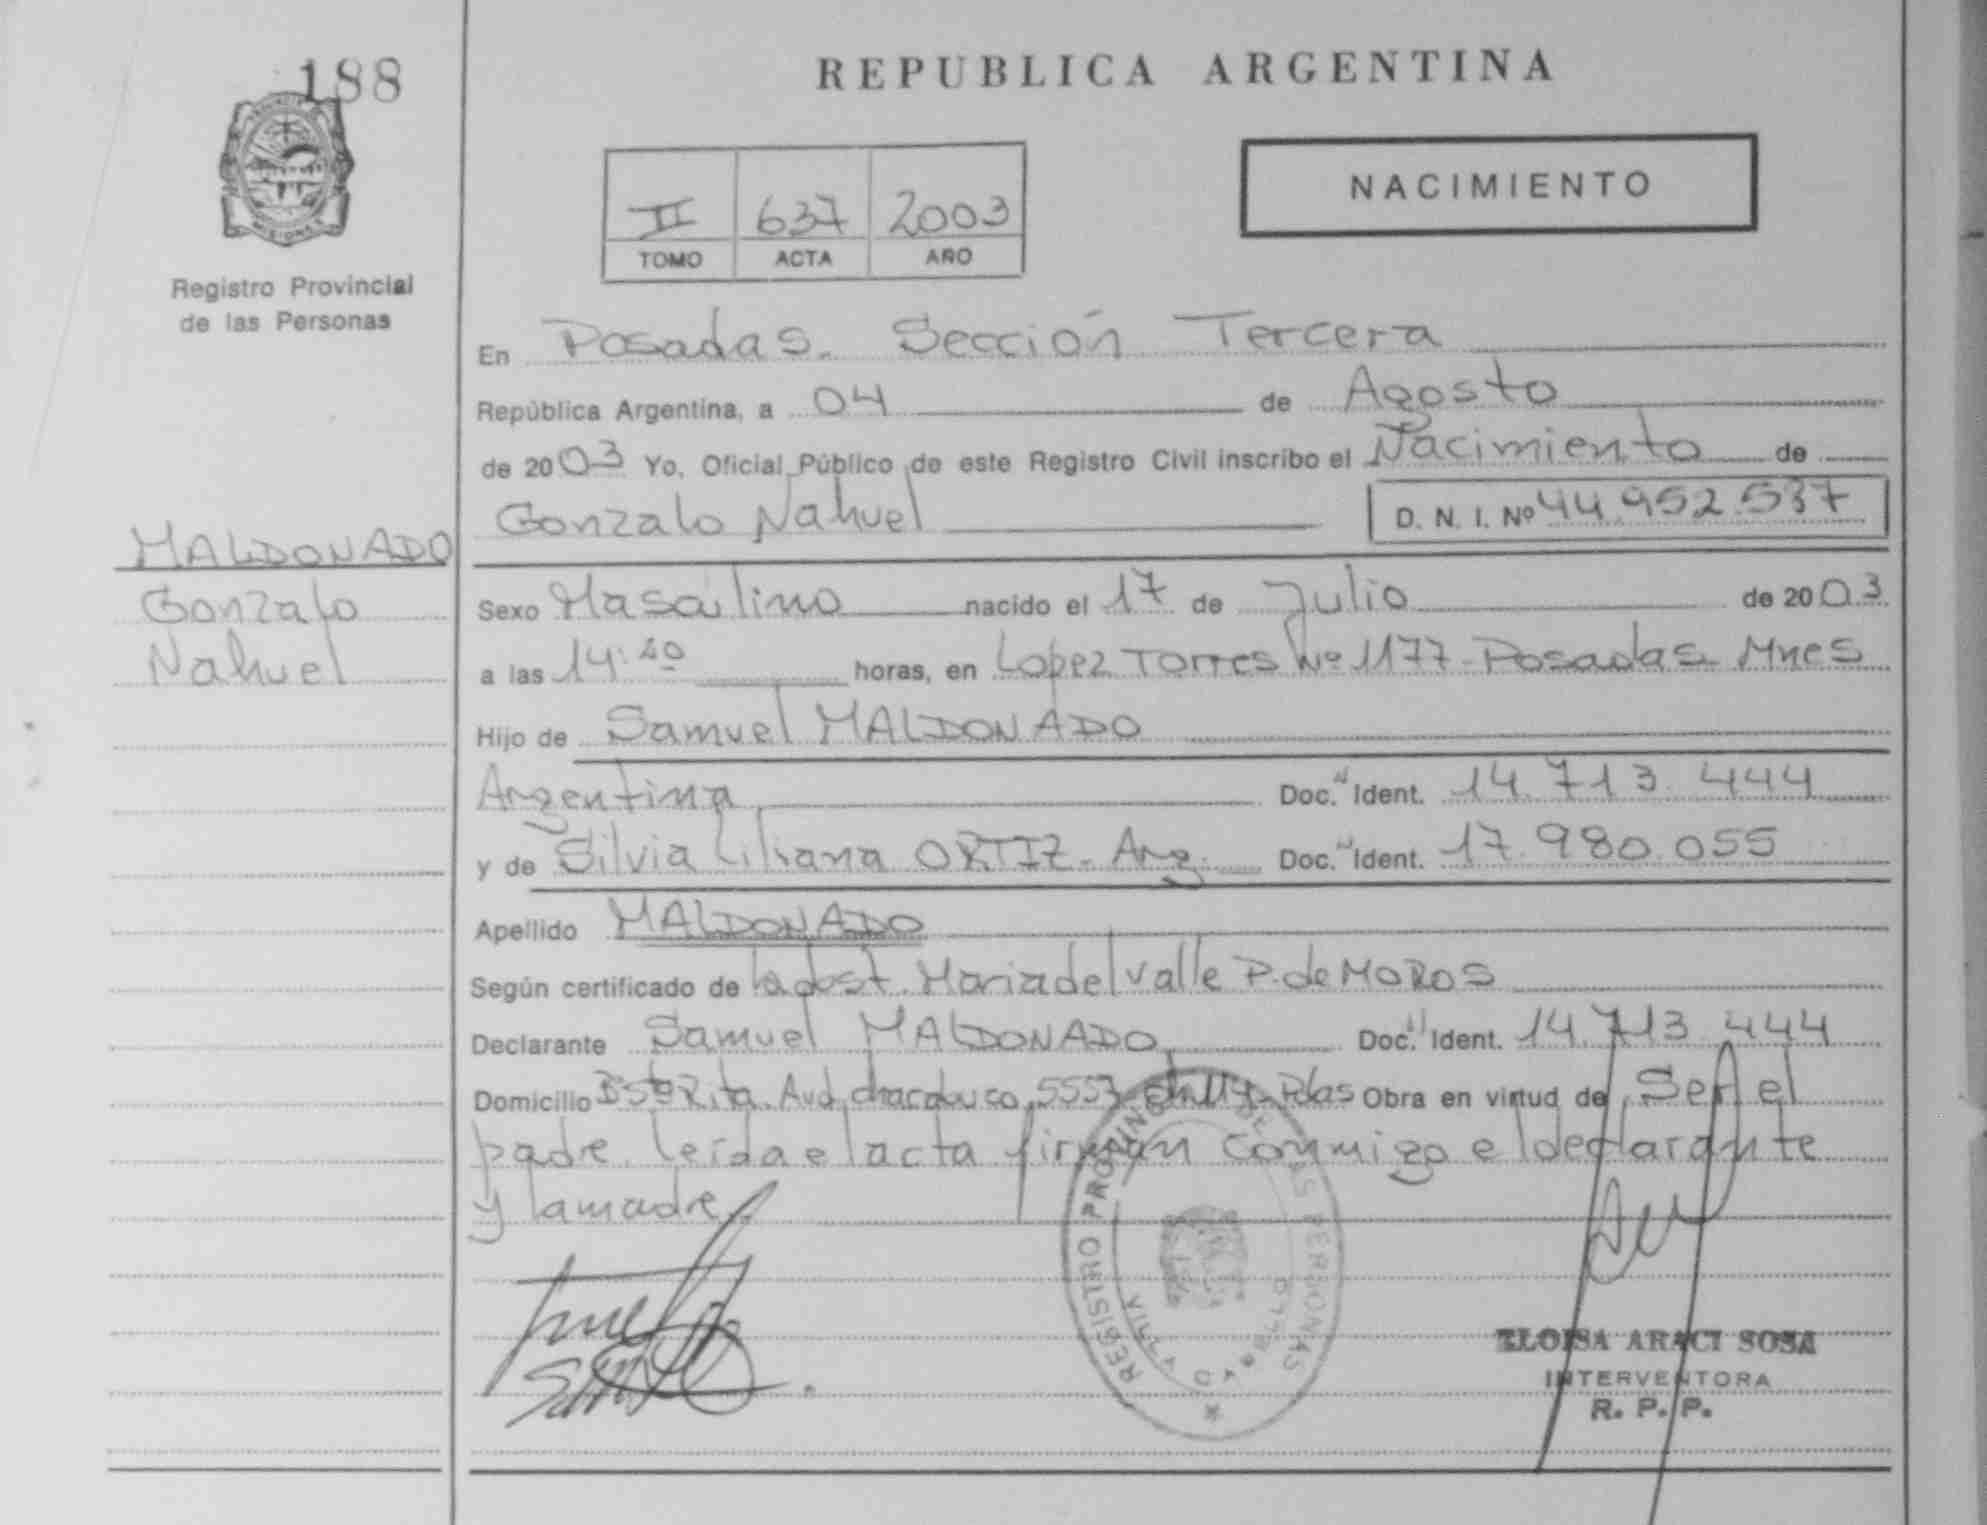 188
REPUBLICA ARGENTINA
NACIMIENTO
II 637 2003
TOMO ACTA AÑO
MISIONES
Registro Provincial
de las Personas
En Posadas. Sección Tercera
República Argentina, a 04 de Agosto
de 2003 Yo, Oficial Público de este Registro Civil inscribo el Nacimiento de
Gonzalo Nahuel D. N. I. Nº 44.952.537
MALDONADO
Gonzalo
Nahuel
Sexo Masculino nacido el 17 de Julio de 2003
a las 14:40 horas, en Lopez Torres Nº 1177 - Posadas Mnes
Hijo de Samuel MALDONADO
Argentina Doc. Ident. 14.713.444
y de Silvia Liliana ORTIZ - Arg. Doc. Ident. 17.980.055
Apellido MALDONADO
Según certificado de la obst. Maria del Valle P. de MOROS
Declarante Samuel MALDONADO Doc. Ident. 14.713.444
Domicilio Bº Sta Rita. Avd. chacabuco 5553 Pdas Obra en virtud de Ser el
padre. leída el acta firman conmigo el declarante
y la madre.
REGISTRO PROVINCIAL DE LAS PERSONAS
ELOISA ARACI SOSA
INTERVENTORA
R. P. P.